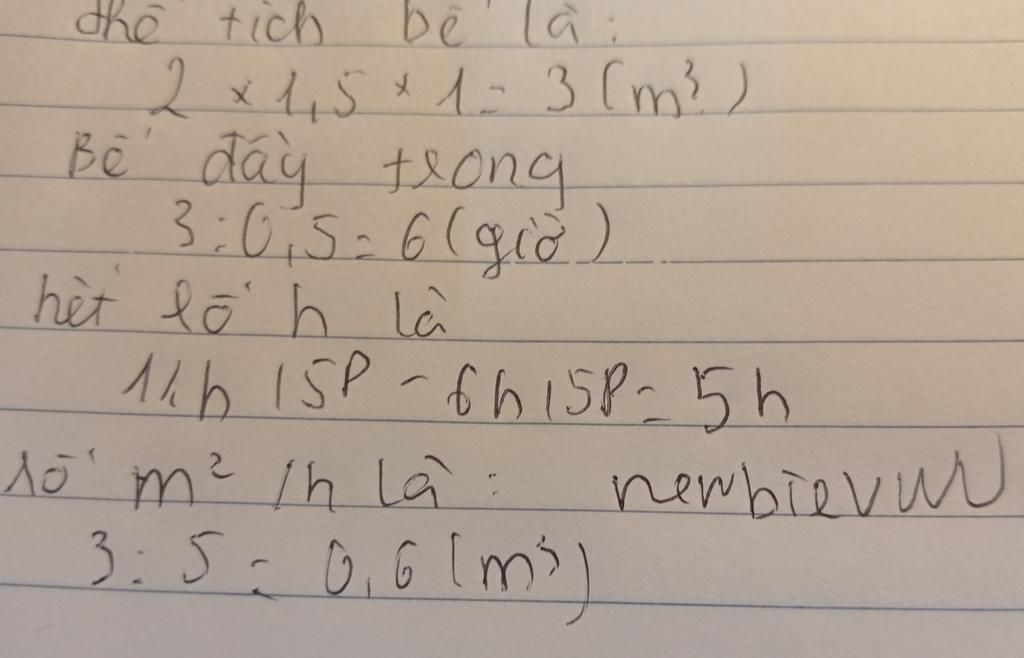 thể tích bể là:
2 × 1,5 × 1 = 3 (m³)
Bể đầy trong
3 : 0,5 = 6 (giờ)
hết số h là
11h 15P - 6h 15P = 5h
số m² /h là : newbievuw
3 : 5 = 0,6 (m³)